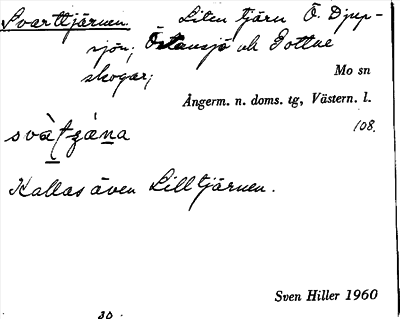 Svarttjärnen. Liten tjärn Ö. Djup-
sjön; Östansjö och Gottne
skogar;
Mo sn
Ångerm. n. doms. tg, Västern. l.
108.
svàt̲ʒá̲na
Kallas även Lilltjärnen.
Sven Hiller 1960
30.